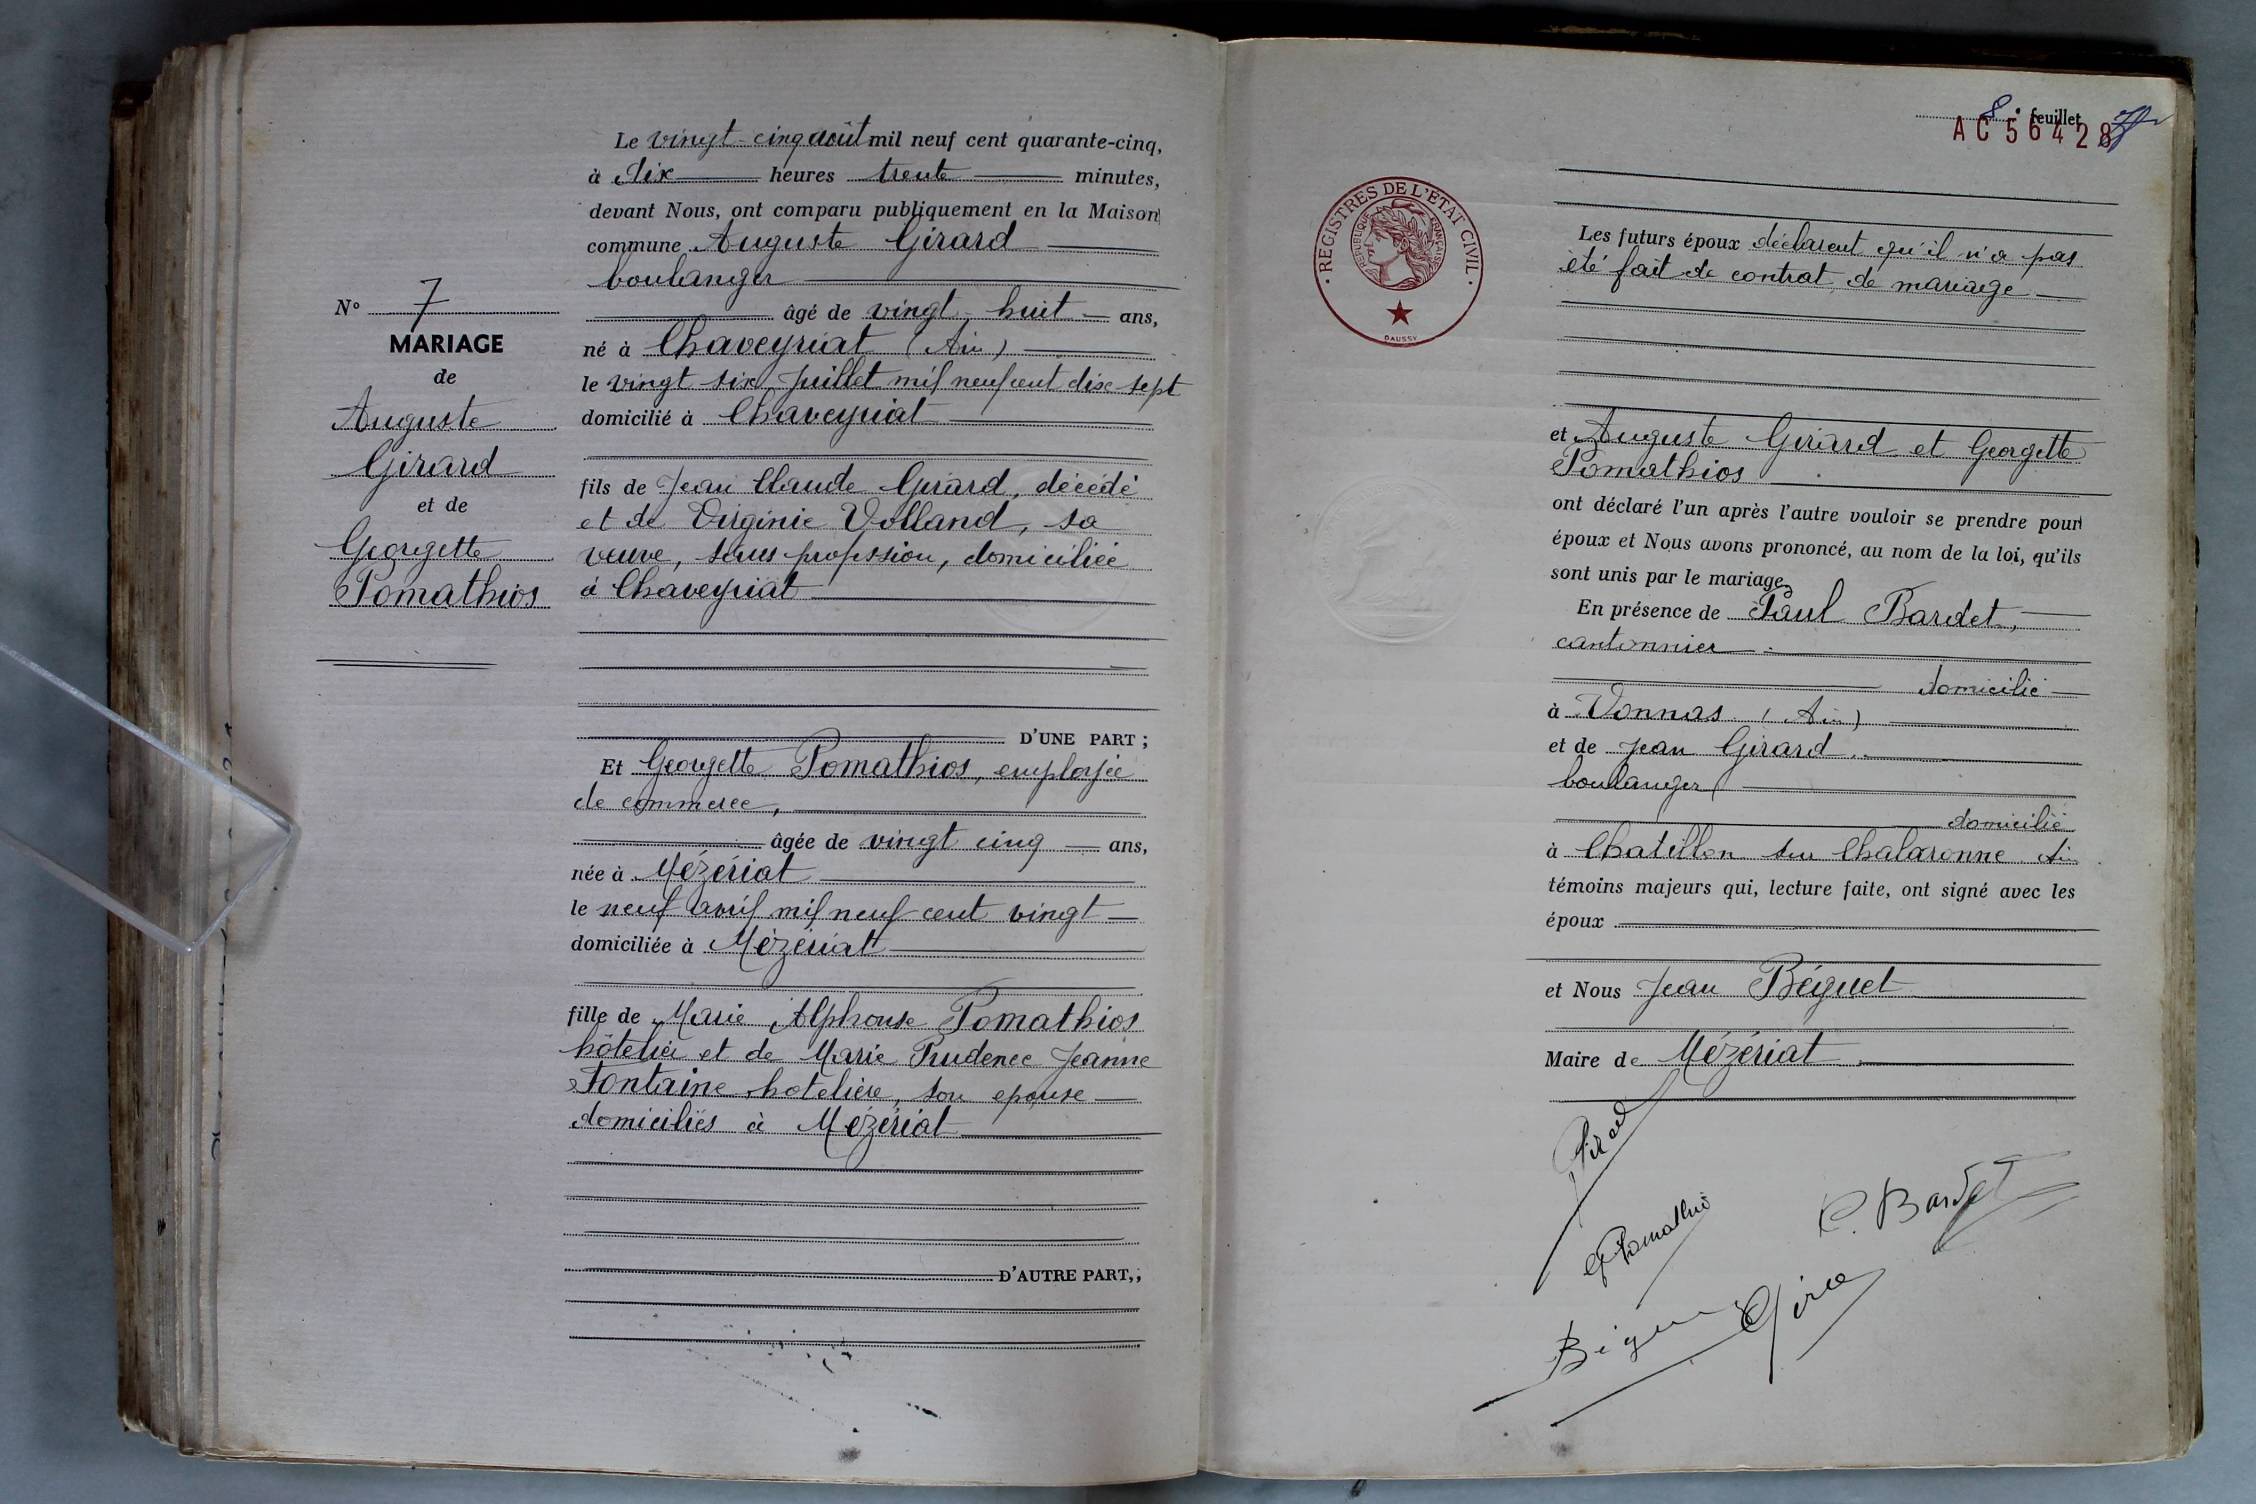 Le vingt-cinq août mil neuf cent quarante-cinq,
à dix heures trente minutes,
devant Nous, ont comparu publiquement en la Maison
commune Auguste Girard
boulanger
âgé de vingt-huit ans,
né à Chaveyriat (Ain)
le vingt six Juillet mil neuf cent dix sept
domicilié à Chaveyriat
fils de Jean Claude Girard, décédé
et de Virginie Volland, sa
veuve, sans profession, domiciliée
à Chaveyriat
D'UNE PART ;
Et Georgette Pomathios, employée
de commerce,
âgée de vingt cinq ans,
née à Mézériat
le neuf avril mil neuf cent vingt
domiciliée à Mézériat
fille de Marie Alphonse Pomathios
hôtelier et de Marie Prudence Jeanne
Fontaine hotelière, son epouse
domiciliés à Mézériat
D'AUTRE PART,;
N° 7
MARIAGE
de
Auguste
Girard
et de
Georgette
Pomathios
8e feuillet
AC 56428
REGISTRES DE L'ÉTAT CIVIL
RÉPUBLIQUE FRANÇAISE
DAUSSY
Les futurs époux déclarent qu'il n'a pas
été fait de contrat de mariage
et Auguste Girard et Georgette
Pomathios
ont déclaré l'un après l'autre vouloir se prendre pour
époux et Nous avons prononcé, au nom de la loi, qu'ils
sont unis par le mariage,
En présence de Paul Bardet,
cantonnier
domicilié
à Vonnas (Ain)
et de Jean Girard,
boulanger
domicilié
à Chatillon sur Chalaronne Ain
témoins majeurs qui, lecture faite, ont signé avec les
époux
et Nous Jean Béguet
Maire de Mézériat
Girard
G Pomathios
P. Bardet